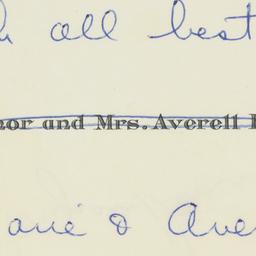 h all best
nor and Mrs. Averell
arie & Ave